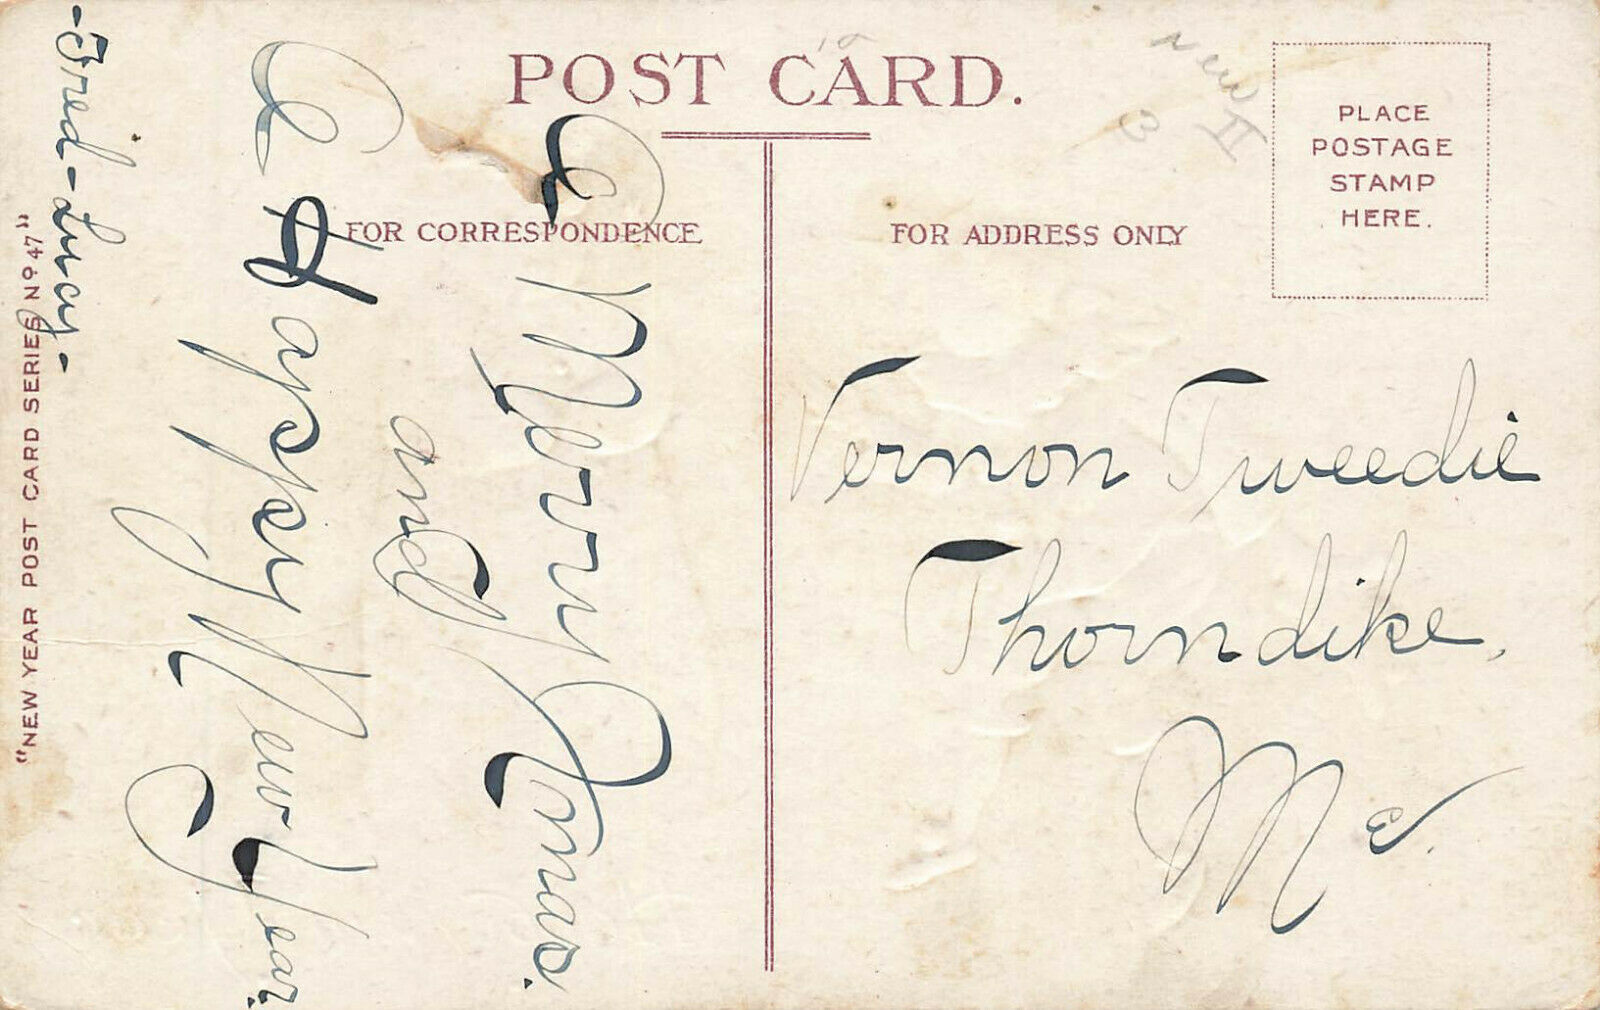 POST CARD.
FOR CORRESPONDENCE
FOR ADDRESS ONLY
PLACE
POSTAGE
STAMP
HERE.
A Merry Xmas.
and
A Happy New Year.
-Fred-Lucy-
"NEW YEAR POST CARD SERIES No 47"
Vernon Tweedie
Thorndike,
Me.
3